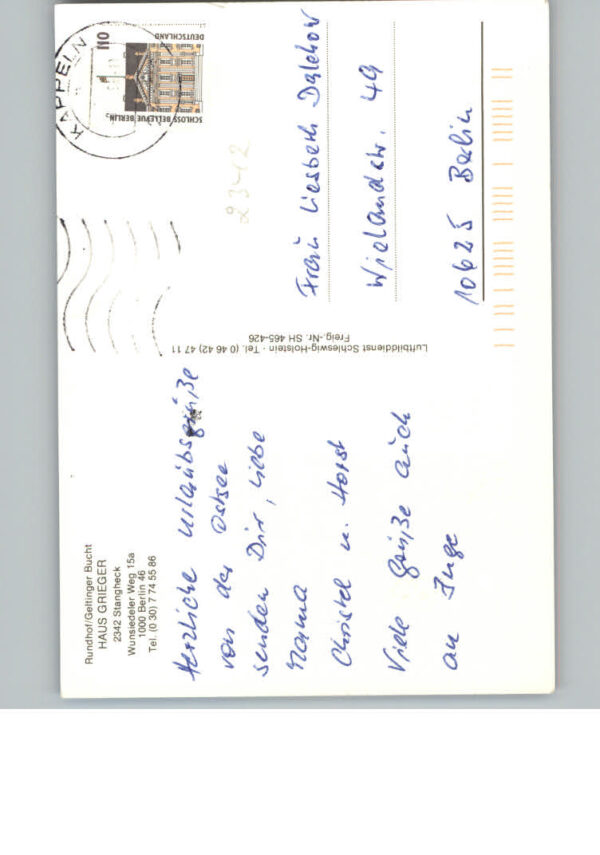 Rundhof/Geltinger Bucht
HAUS GRIEGER
2342 Stangheck
Wunsiedeler Weg 15a
1000 Berlin 46
Tel. (0 30) 7 74 55 86
Herzliche Urlaubsgrüße
von der Ostsee
senden Dir, liebe
Mama
Christel u. Horst
Viele Grüße auch
an Inge
Luftbilddienst Schleswig-Holstein · Tel. (0 46 42) 47 11
Freig.-Nr. SH 465-426
KAPPELN
110
DEUTSCHLAND
SCHLOSS BELLEVUE BERLIN
2342
Frau Liesbeth Dalchow
Wielandstr. 49
10625 Berlin